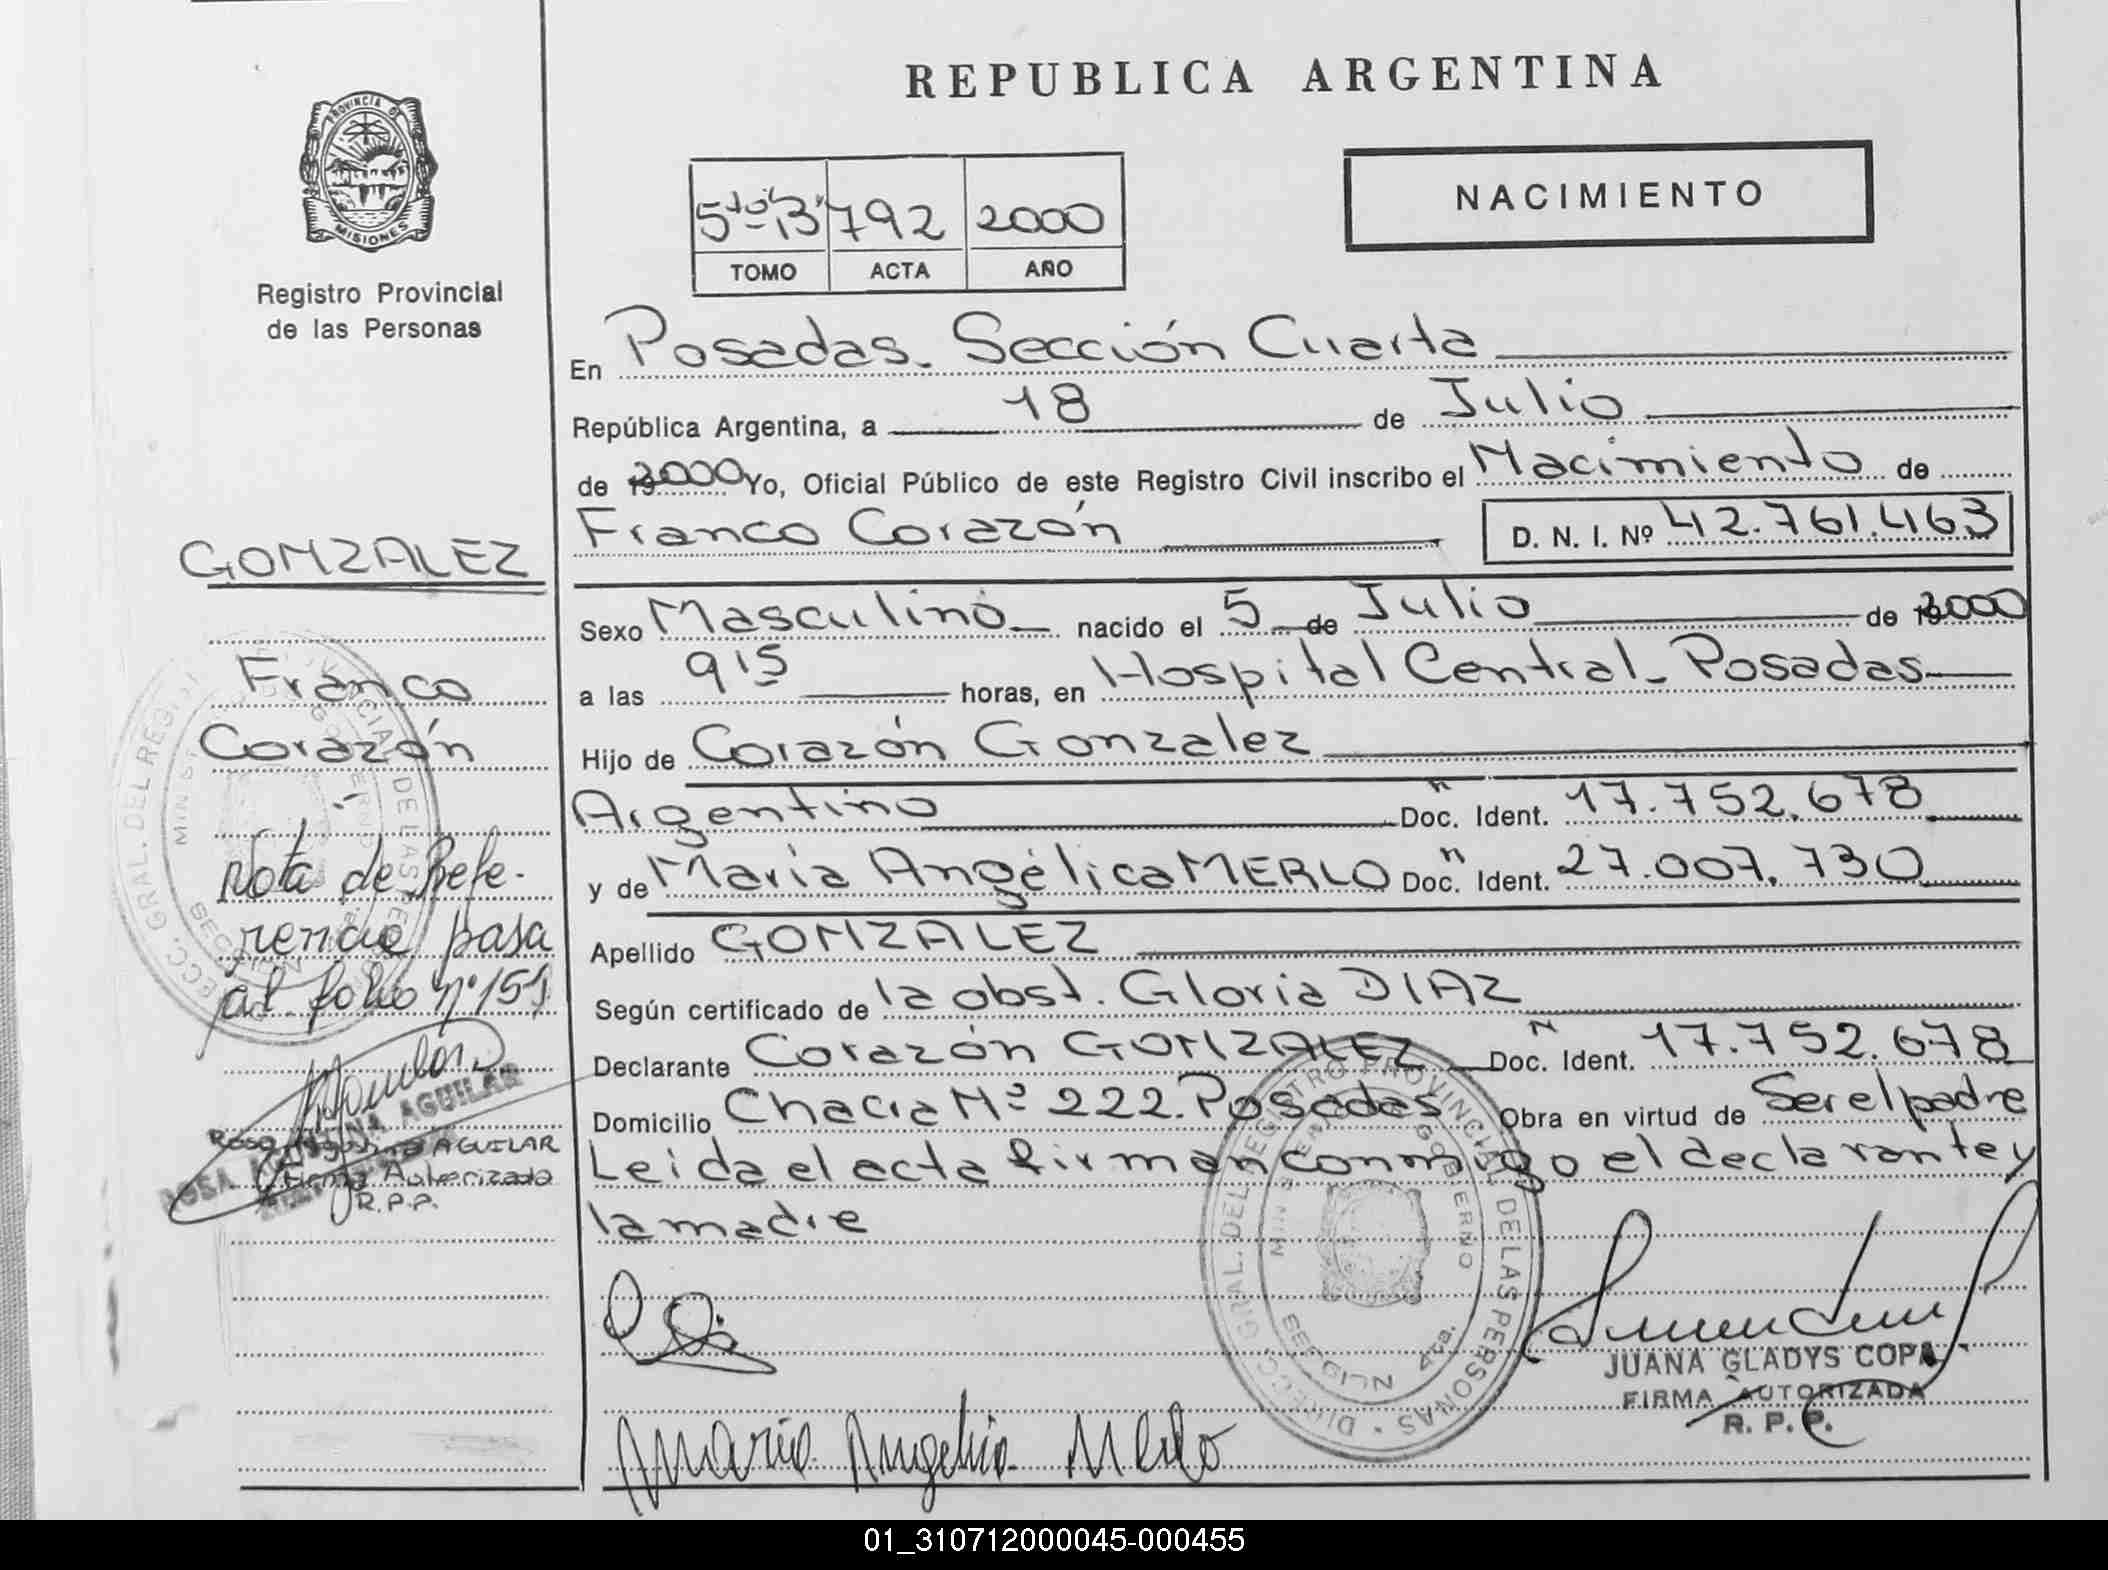 REPUBLICA ARGENTINA
PROVINCIA DE MISIONES
Registro Provincial
de las Personas
5to "B" 792 2000
TOMO ACTA AÑO
NACIMIENTO
En Posadas. Sección Cuarta
República Argentina, a 18 de Julio
de 2000 Yo, Oficial Público de este Registro Civil inscribo el Nacimiento de
Franco Corazón D. N. I. Nº 42.761.463
Sexo Masculino nacido el 5 de Julio de 2000
a las 9'15 horas, en Hospital Central - Posadas
Hijo de Corazón Gonzalez
Argentino Doc. n Ident. 17.752.678
y de María Angélica MERLO Doc. n Ident. 27.007.730
Apellido GONZALEZ
Según certificado de la obst. Gloria DIAZ
Declarante Corazón GONZALEZ Doc. N Ident. 17.752.678
Domicilio Chacra Nº 222. Posadas Obra en virtud de Ser el padre
Leida el acta firman conmigo el declarante y
la madre
María Angelica Merlo
JUANA GLADYS COPA
FIRMA AUTORIZADA
R. P. P.
DIRECC. GRAL. DEL REGISTRO PROVINCIAL DE LAS PERSONAS
MIN. GOBIERNO
SECCION 4ta.
GONZALEZ
Franco
Corazón
Nota de Refe-
rencia pasa
al folio nº 151
AGUILAR
Rosa AGUILAR
Firma Autorizada
R.P.P.
DIRECC. GRAL. DEL REGISTRO PROVINCIAL DE LAS PERSONAS
SECCION
01_310712000045-000455